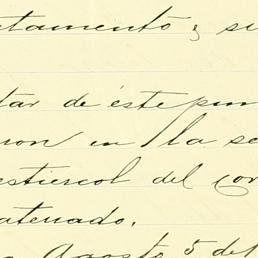 tamento; si
tar de éste pun
ron en la se
estiercol del cor
atenado.
Agosto 5 de